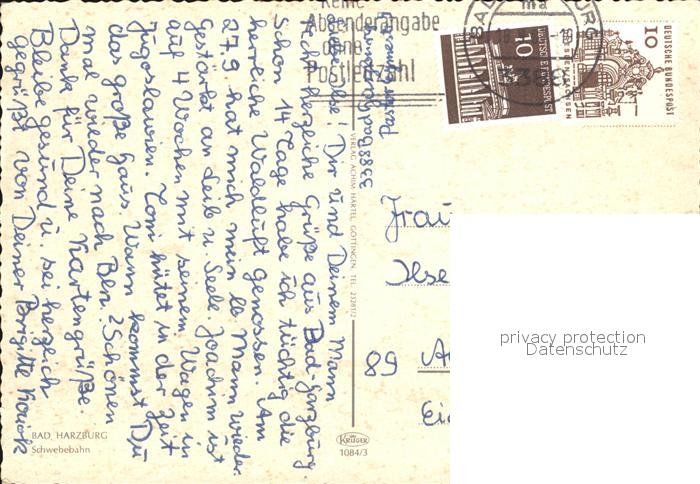 Keine
Absenderangabe
ohne
Postleitzahl
BAD HARZBURG
ma
3388
10
DEUTSCHE BUNDESPOST
10
DEUTSCHE BUNDESPOST
SACHSEN
3388 Bad Harzburg
Liebe Ilse! Dir und Deinem Mann
recht herzliche Grüße aus Bad-Harzburg.
Schon 14 Tage habe ich tüchtig die
herrliche Waldluft genossen. Am
27.9. hat mich mein lb Mann wieder.
Gestärkt an Leib u. Seele. Joachim ist
auf 4 Wochen mit seinem Wagen in
Jugoslawien. Tom hütet in der Zeit
das große Haus. Wann kommst Du
mal wieder nach Bln.? Schönen
Dank für Deine Kartengrüße.
Bleibe gesund u sei herzlich
gegrüßt von Deiner Brigitte
VERLAG ACHIM HÄRTEL, GÖTTINGEN, TEL. 23287/2
Frau
Ilse
89 A
BAD HARZBURG
Schwebebahn
KRÜGER
1084/3
privacy protection
Datenschutz